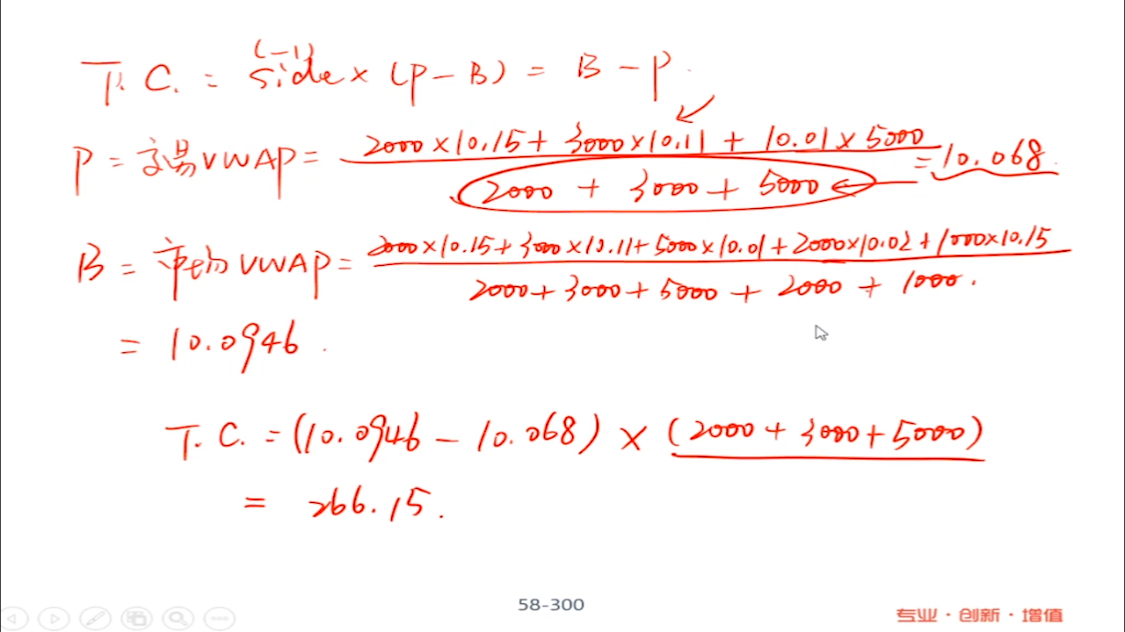 (-1)
T. C. = side × (P - B) = B - P.
P = 交易VWAP = (2000 × 10.15 + 3000 × 10.11 + 10.01 × 5000) / (2000 + 3000 + 5000) = 10.068.
B = 市场VWAP = (2000×10.15 + 3000×10.11 + 5000×10.01 + 2000×10.02 + 1000×10.15) / (2000 + 3000 + 5000 + 2000 + 1000.)
= 10.0946.
T. C. = (10.0946 - 10.068) × (2000 + 3000 + 5000)
= 266.15.
58-300
专业·创新·增值